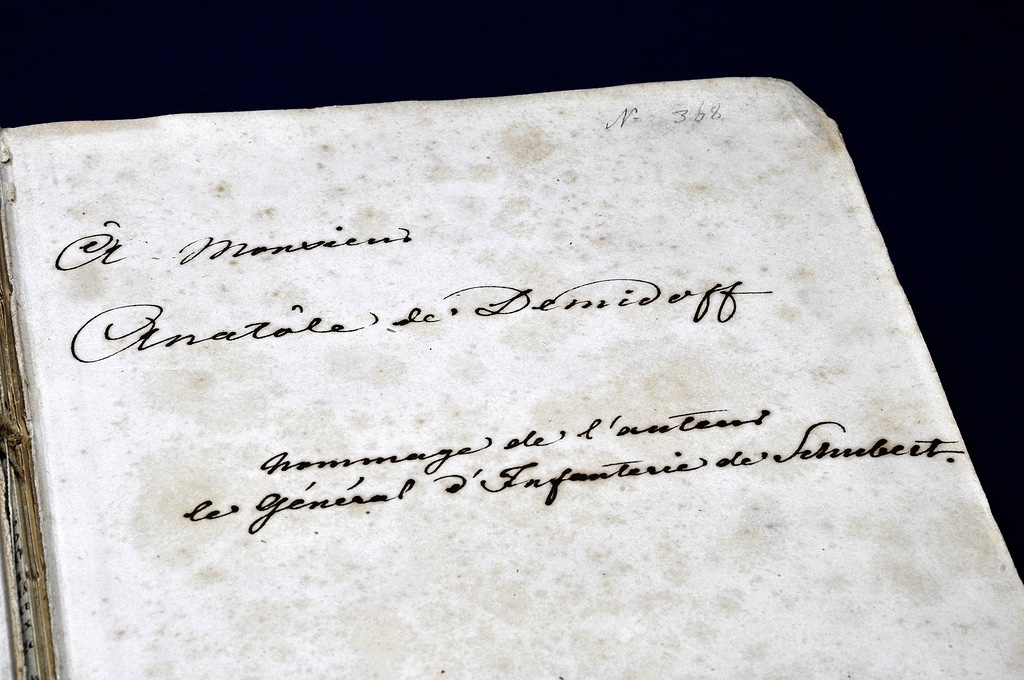 N- 368
Â Monsieur
Anatôle de Demidoff
hommage de l'auteur
le Général d'Infanterie de Schubert.